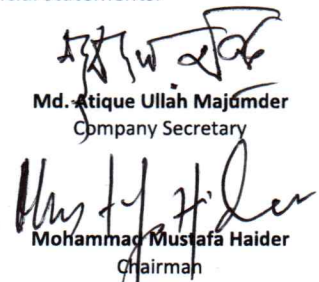 statements.
Md. Atique Ullah Majumder
Company Secretary
Mohammad Mustafa Haider
Chairman